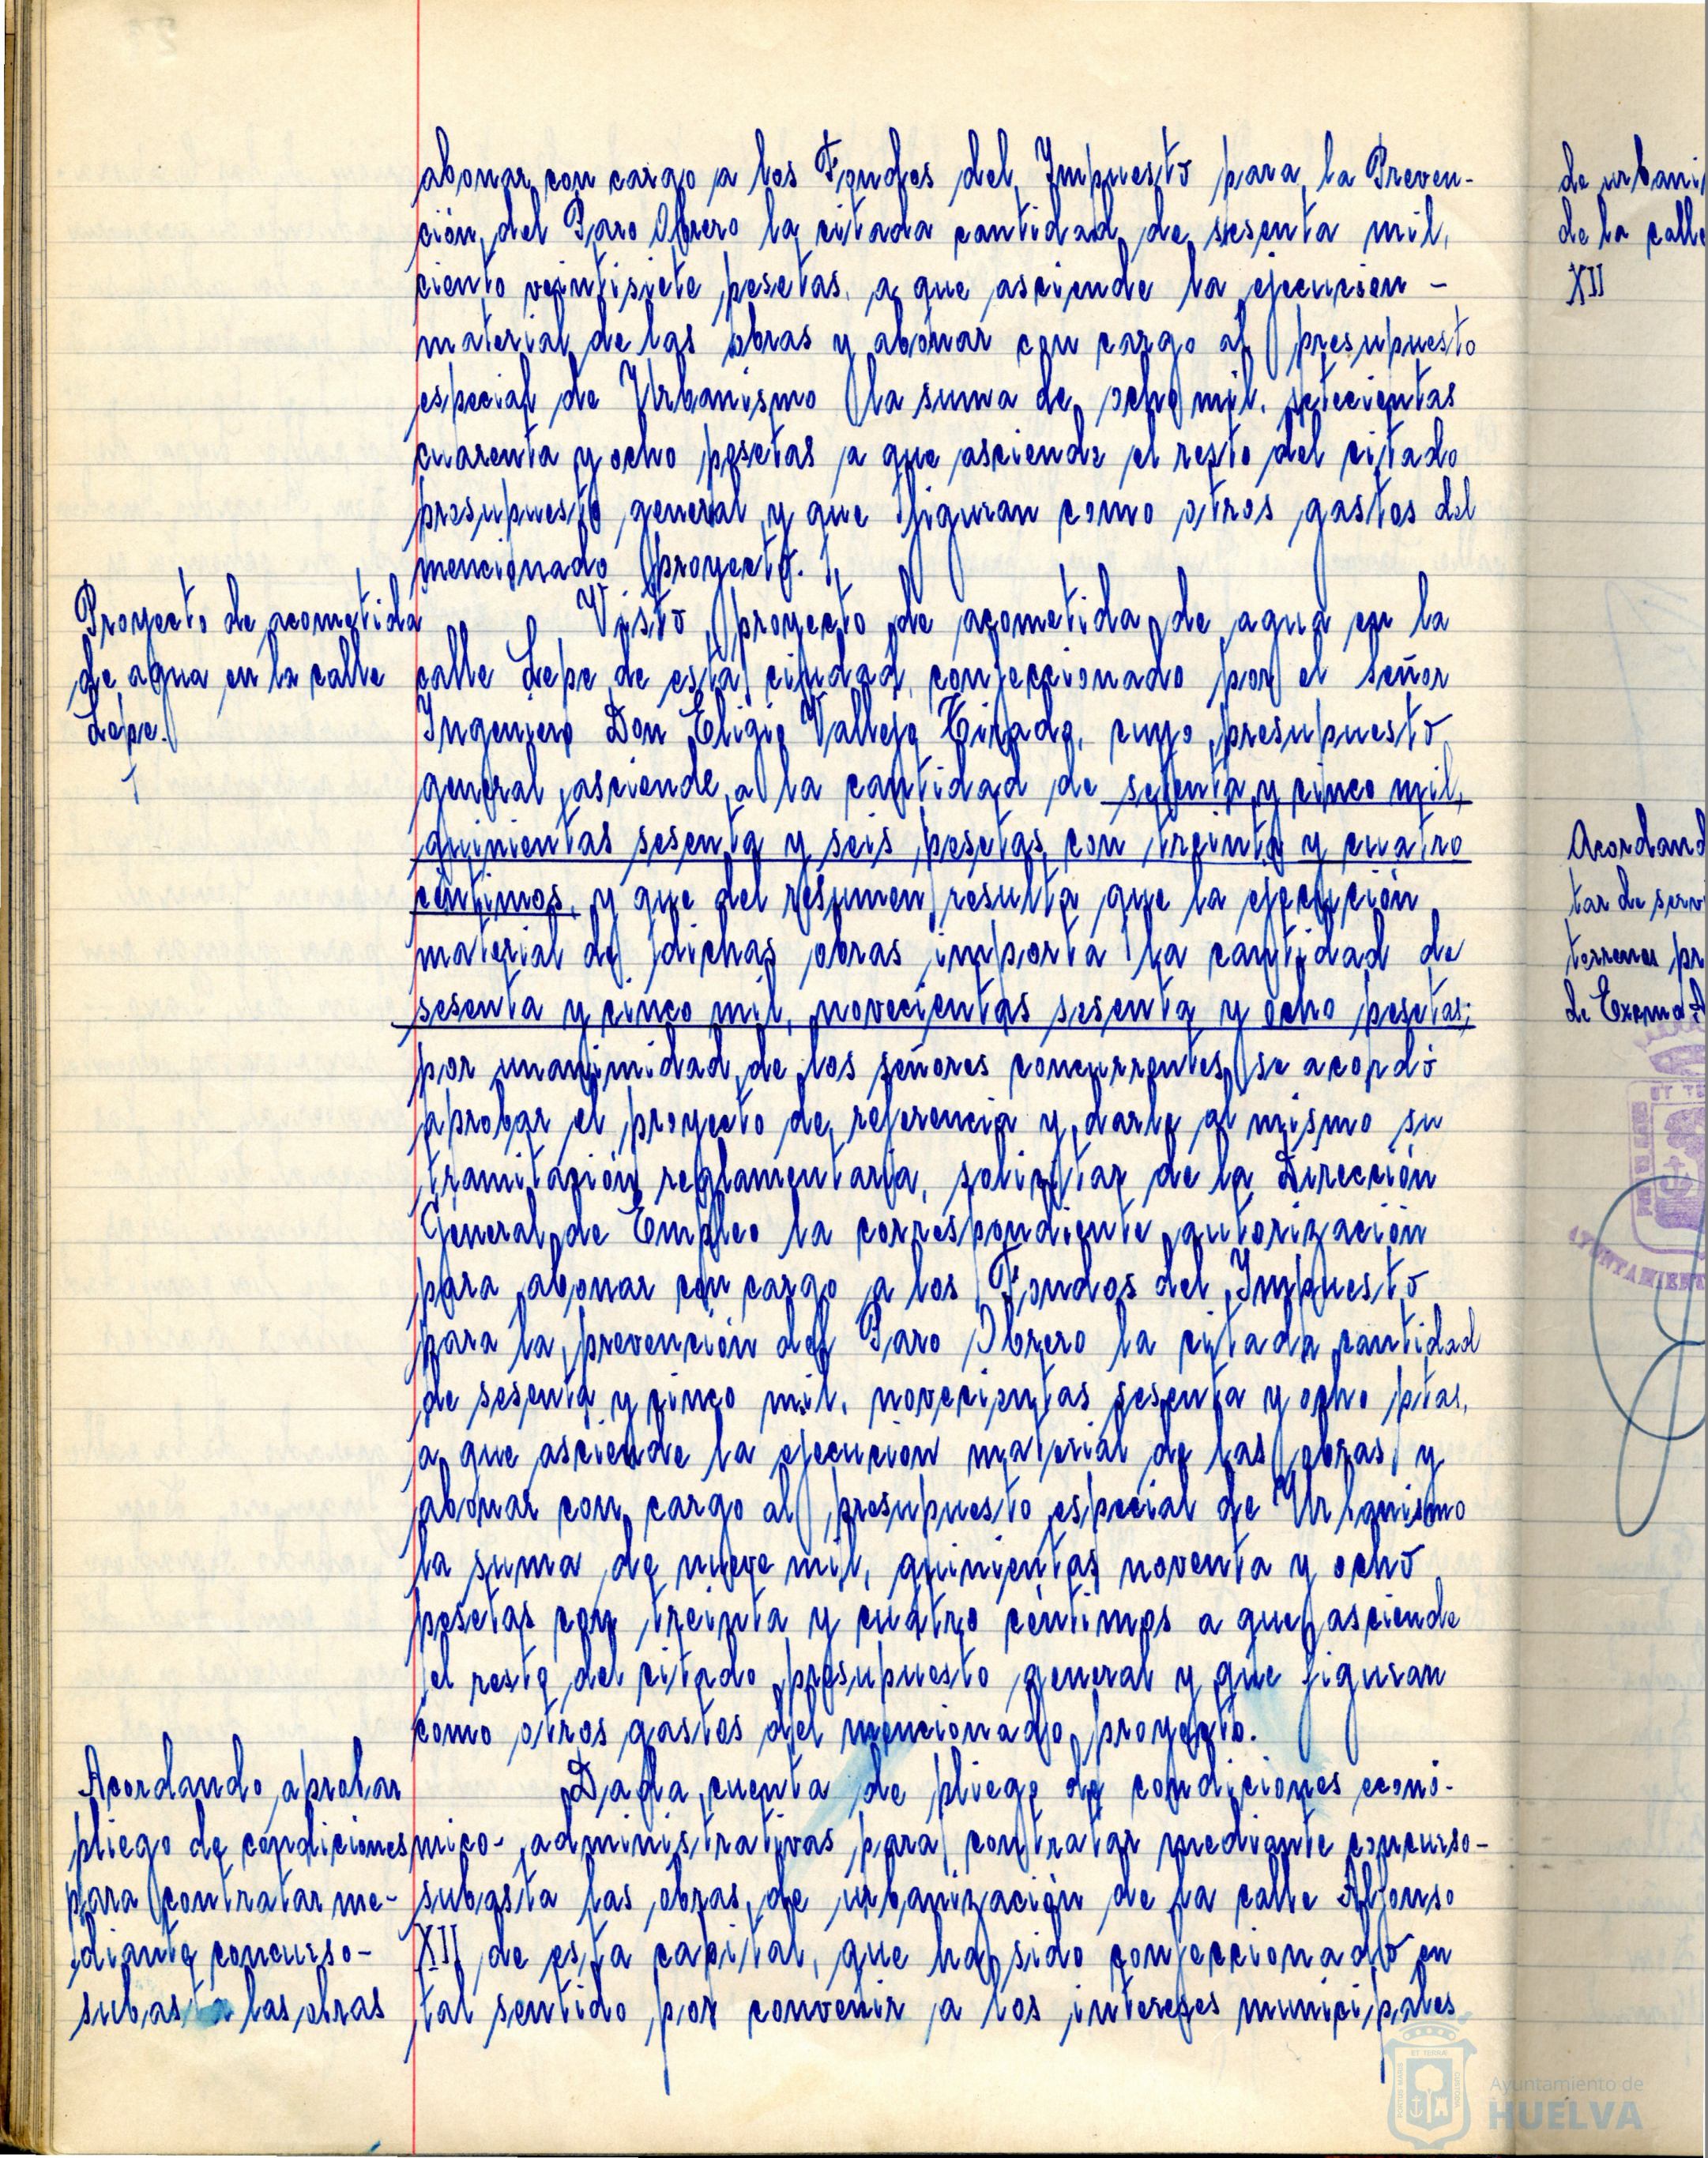 abonar con cargo a los Fondos del Impuesto para la Preven-
ción del Paro Obrero la citada cantidad de sesenta mil,
ciento veintisiete pesetas, a que asciende la ejecucion -
material de las obras y abonar con cargo al presupuesto
especial de Urbanismo la suma de ocho mil, setecientas
cuarenta y ocho pesetas a que asciende el resto del citado
presupuesto general y que figuran como otros gastos del
mencionado proyecto.
Proyecto de acometida
de agua en la calle
Lepe.
Visto proyecto de acometida de agua en la
calle Lepe de esta ciudad, confeccionado por el señor
Ingeniero Don Eligio Vallejo Tirado, cuyo presupuesto
general asciende a la cantidad de setenta y cinco mil,
quinientas sesenta y seis pesetas con treinta y cuatro
céntimos, y que del resumen resulta que la ejecución
material de dichas obras importa la cantidad de
sesenta y cinco mil, novecientas sesenta y ocho pesetas;
por unanimidad de los señores concurrentes se acordó
aprobar el proyecto de referencia y darle al mismo su
tramitación reglamentaria, solicitar de la Dirección
General de Empleo la correspondiente autorización
para abonar con cargo a los Fondos del Impuesto
para la prevención del Paro Obrero la citada cantidad
de sesenta y cinco mil, novecientas sesenta y ocho ptas,
a que asciende la ejecución material de las obras y
abonar con cargo al presupuesto especial de Urbanismo
la suma de nueve mil, quinientas noventa y ocho
pesetas con treinta y cuatro céntimos a que asciende
el resto del citado presupuesto general y que figuran
como otros gastos del mencionado proyecto.
Acordando aprobar
pliego de condiciones
para contratar me-
diante concurso-
subasta las obras
Dada cuenta de pliego de condiciones econó-
mico- administrativas para contratar mediante concurso-
subasta las obras de urbanización de la calle Alfonso
XII de esta capital, que ha sido confeccionado en
tal sentido por convenir a los intereses municipales
de urbani
de la calle
XII
Acordand
tar de serv
terrenos pr
de Excma.
AYUNTAMIEN
Ayuntamiento de
HUELVA